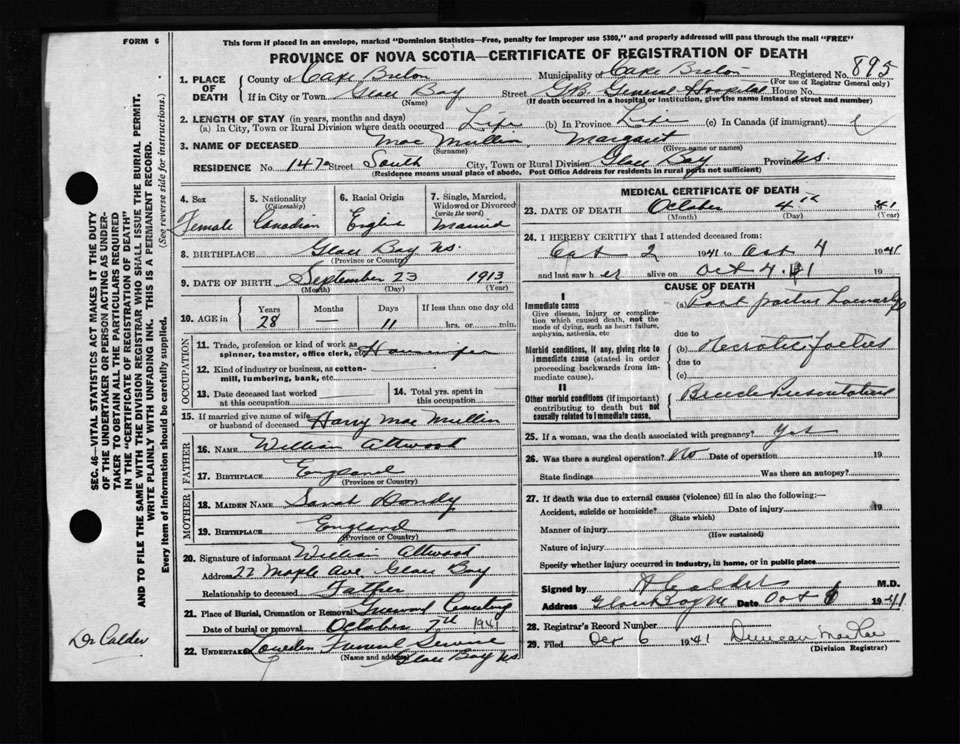 FORM 6
This form if placed in an envelope, marked "Dominion Statistics—Free, penalty for improper use $300," and properly addressed will pass through the mail "FREE"
PROVINCE OF NOVA SCOTIA—CERTIFICATE OF REGISTRATION OF DEATH
1. PLACE OF DEATH
County of Cape Breton Municipality of Cape Breton Registered No. 895
(For use of Registrar General only)
If in City or Town Glace Bay Street G.B. General Hospital House No.
(Name) (If death occurred in a hospital or institution, give the name instead of street and number)
2. LENGTH OF STAY (in years, months and days)
(a) In City, Town or Rural Division where death occurred Life (b) In Province Life (c) In Canada (if immigrant)
3. NAME OF DECEASED Mac Mullin, Margaret
(Surname) (Given name or names)
RESIDENCE No 147 Street South City, Town or Rural Division Glace Bay Province N.S.
(Residence means usual place of abode. Post Office Address for residents in rural parts not sufficient)
4. Sex
Female
5. Nationality
(Citizenship)
Canadian
6. Racial Origin
English
7. Single, Married, Widowed or Divorced
(write the word)
Married
8. BIRTHPLACE Glace Bay N.S.
(Province or Country)
9. DATE OF BIRTH September 23 1913
(Month) (Day) (Year)
10. AGE in
Years Months Days If less than one day old
28 — 11 hrs. or min.
OCCUPATION
11. Trade, profession or kind of work as
spinner, teamster, office clerk, etc Housewife
12. Kind of industry or business, as cotton-
mill, lumbering, bank, etc.
13. Date deceased last worked
at this occupation
14. Total yrs. spent in
this occupation
15. If married give name of wife
or husband of deceased Harry Mac Mullin
FATHER
16. NAME William Attwood
17. BIRTHPLACE England
(Province or Country)
MOTHER
18. MAIDEN NAME Sarah
19. BIRTHPLACE England
(Province or Country)
20. Signature of informant William Attwood
Address 22 Maple Ave Glace Bay
Relationship to deceased Father
21. Place of Burial, Cremation or Removal Greenwood Cemetery
Date of burial or removal October 7th 1941
22. Undertaker Funeral Service
(Name and address) Glace Bay N.S.
MEDICAL CERTIFICATE OF DEATH
23. DATE OF DEATH October 4th 41
(Month) (Day) (Year)
24. I HEREBY CERTIFY that I attended deceased from:
Oct 2 1941 to Oct 4 1941
and last saw h er alive on Oct 4. 41 19
CAUSE OF DEATH
I
Immediate cause
Give disease, injury or complica-
tion which caused death, not the
mode of dying, such as heart failure,
asphyxia, asthenia, etc
(a) Post partum
due to
Morbid conditions, if any, giving rise to
immediate cause (stated in order
proceeding backwards from im-
mediate cause).
(b)
due to
(c)
II
Other morbid conditions (if important)
contributing to death but not
causally related to immediate cause.
Breech Presentation
25. If a woman, was the death associated with pregnancy? Yes
26. Was there a surgical operation? No Date of operation 19
State findings Was there an autopsy?
27. If death was due to external causes (violence) fill in also the following:—
Accident, suicide or homicide? Date of injury 19
(State which)
Manner of injury
(How sustained)
Nature of injury
Specify whether injury occurred in industry, in home, or in public place
Signed by A Calder M.D.
Address Glace Bay NS Date Oct 6 1941
28. Registrar's Record Number
29. Filed Oct 6 1941 Duncan
(Division Registrar)
SEC. 46—VITAL STATISTICS ACT MAKES IT THE DUTY
OF THE UNDERTAKER OR PERSON ACTING AS UNDER-
TAKER TO OBTAIN ALL THE PARTICULARS REQUIRED
IN THE "CERTIFICATE OF REGISTRATION OF DEATH"
AND TO FILE THE SAME WITH THE DIVISION REGISTRAR WHO SHALL ISSUE THE BURIAL PERMIT.
WRITE PLAINLY WITH UNFADING INK. THIS IS A PERMANENT RECORD.
Every item of information should be carefully supplied. (See reverse side for instructions.)
Dr Calder